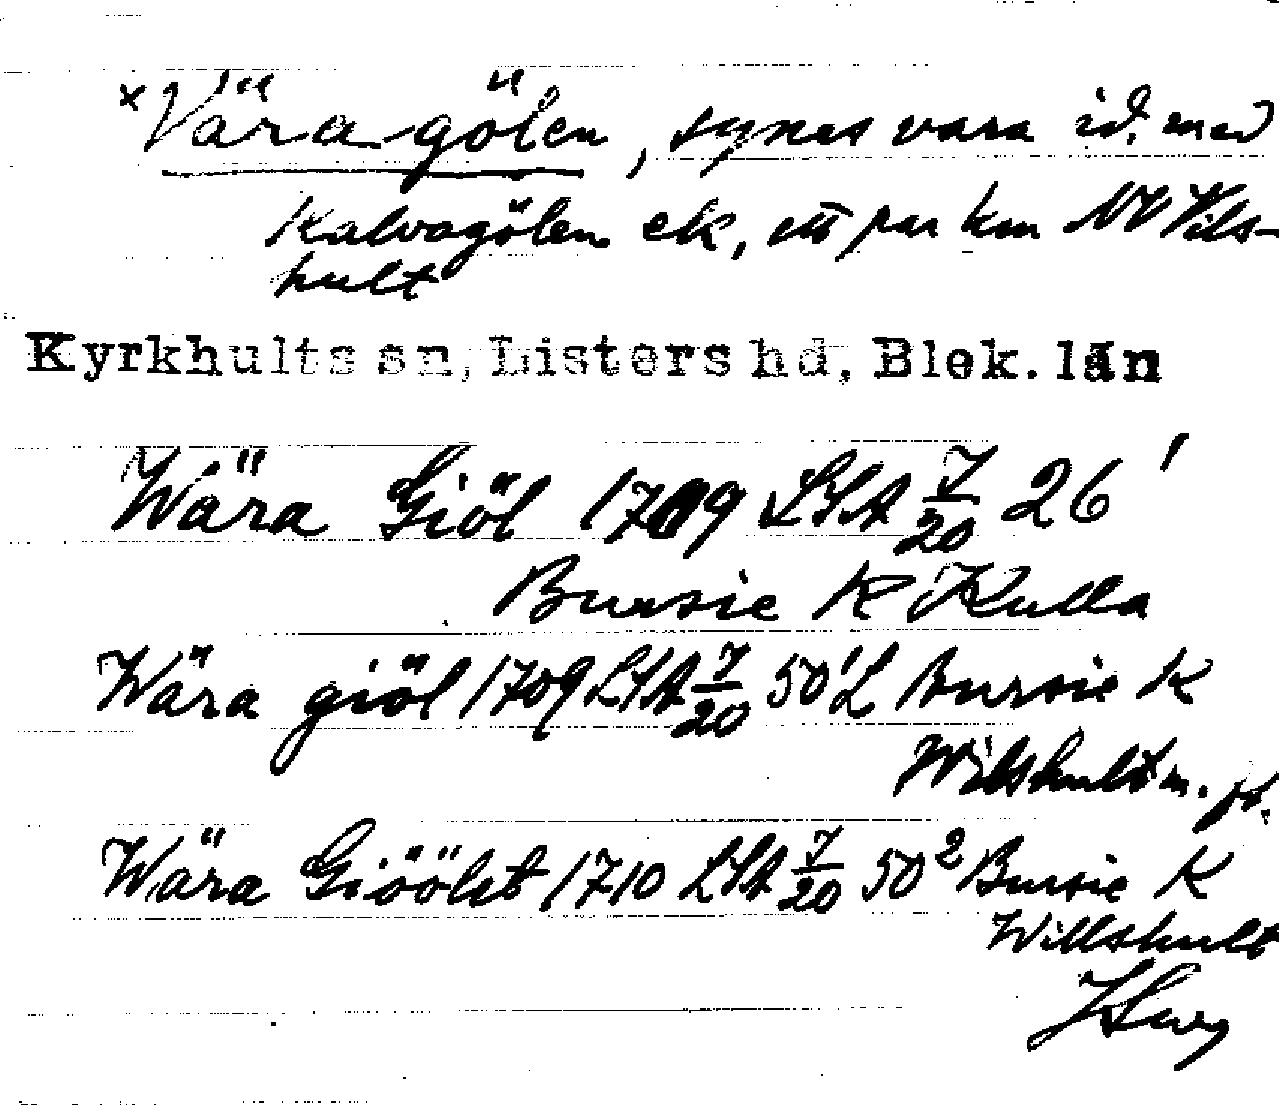 × Väragölen, synes vara id. med
Kalvagölen ek, ett par km NV Vils-
hult
Kyrkhults sn, Listers hd, Blek. län
Wära Giöl 1709 LSA 7/20 26¹
Bursie K Kulla
Wära giöl 1709 LSA 7/20 50¹ L Bursie K
Wilshult m. fl.
Wära Giöölet 1710 LSA 7/20 50² Bursie K
Willshult